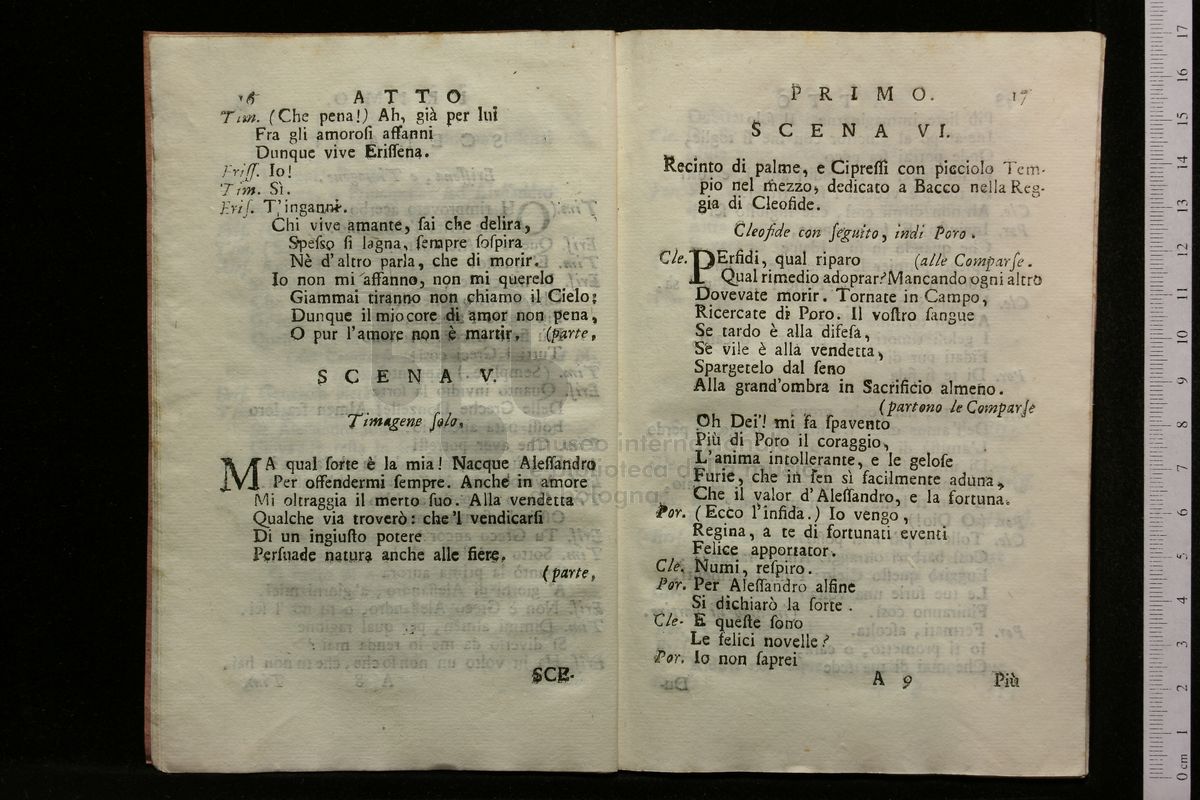 16 ATTO
Tim. (Che pena!) Ah, già per lui
Fra gli amorosi affanni
Dunque vive Erissena.
Eriss. Io!
Tim. Sì.
Eris. T'inganni.
Chi vive amante, sai che delira,
Spesso si lagna, sempre sospira
Nè d'altro parla, che di morir.
Io non mi affanno, non mi querelo
Giammai tiranno non chiamo il Cielo;
Dunque il mio core di amor non pena,
O pur l'amore non è martir. (parte,
SCENA V.
Timagene solo.
MA qual sorte è la mia! Nacque Alessandro
Per offendermi sempre. Anche in amore
Mi oltraggia il merto suo. Alla vendetta
Qualche via troverò: che'l vendicarsi
Di un ingiusto potere
Persuade natura anche alle fiere.
(parte,
SCE-
PRIMO. 17
SCENA VI.
Recinto di palme, e Cipressi con picciolo Tem-
pio nel mezzo, dedicato a Bacco nella Reg-
gia di Cleofide.
Cleofide con seguito, indi Poro.
Cle. PErfidi, qual riparo (alle Comparse.
Qual rimedio adoprar? Mancando ogni altro
Dovevate morir. Tornate in Campo,
Ricercate di Poro. Il vostro sangue
Se tardo è alla difesa,
Se vile è alla vendetta,
Spargetelo dal seno
Alla grand'ombra in Sacrificio almeno.
(partono le Comparse
Oh Dei'! mi fa spavento
Più di Poro il coraggio,
L'anima intollerante, e le gelose
Furie, che in sen sì facilmente aduna,
Che il valor d'Alessandro, e la fortuna.
Por. (Ecco l'infida.) Io vengo,
Regina, a te di fortunati eventi
Felice apportator.
Cle. Numi, respiro.
Por. Per Alessandro alfine
Si dichiarò la sorte.
Cle- E queste sono
Le felici novelle?
Por. Io non saprei
A 9 Più
museo internazionale
biblioteca della musica
bologna
0 cm 1 2 3 4 5 6 7 8 9 10 11 12 13 14 15 16 17